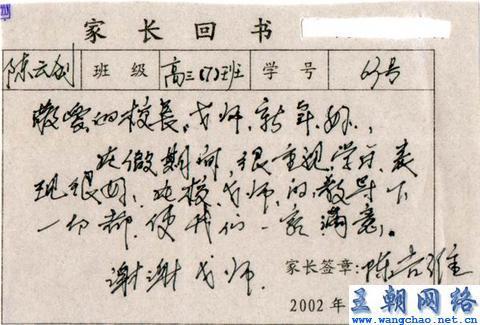 家长回书
陈云剑 班级 高三(7)班 学号 63号
敬爱的校长、老师,新年好,
在假期间,很重视学习,表
现很好,在校老师的教导下
一切都使我们一家满意。
谢谢老师.
家长签章:陈
2002年
王朝网络
www.wangchao.net.cn